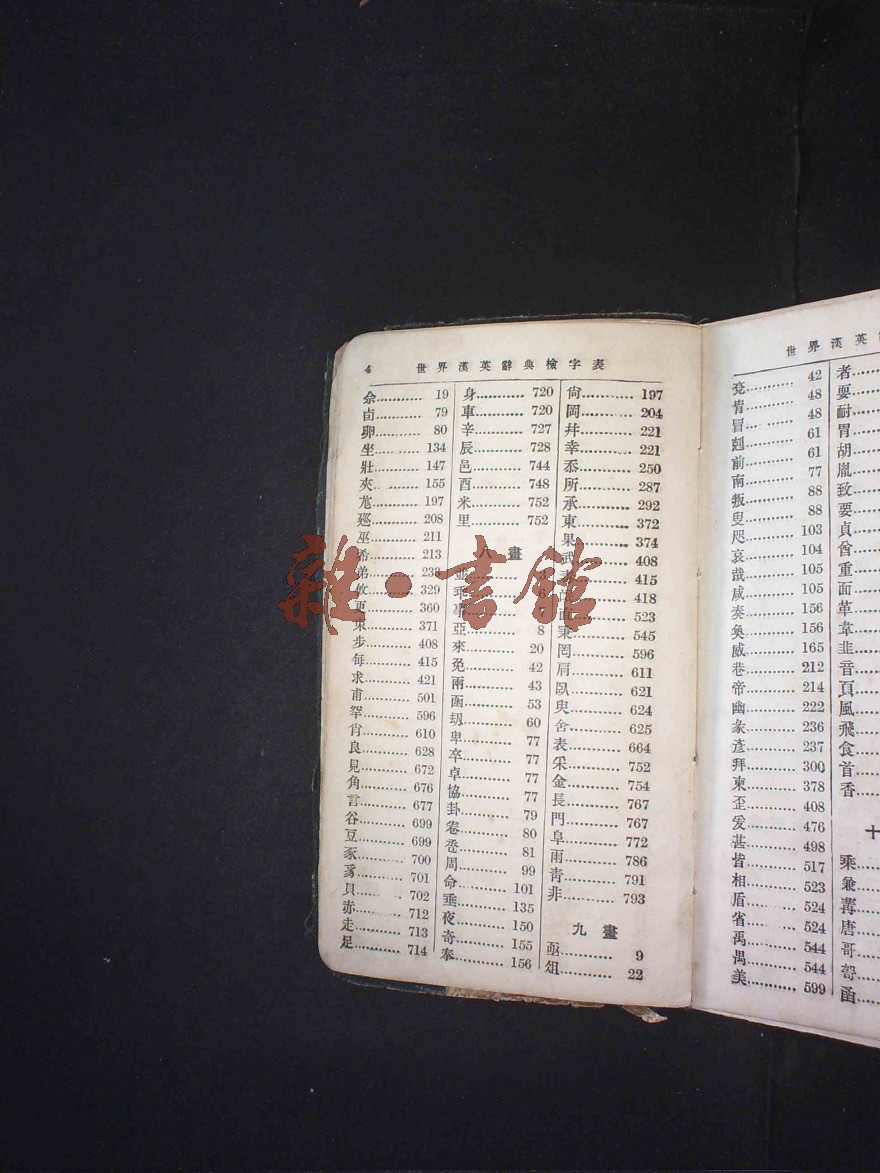 4 世界漢英辭典檢字表
余 19
卣 79
卵 80
坐 134
壯 147
夾 155
尨 197
巡 208
巫 211
希 213
弟 233
攸 329
更 360
束 371
步 408
每 415
求 421
甫 501
罕 596
肖 610
良 628
見 672
角 676
言 677
谷 699
豆 699
豕 700
豸 701
貝 702
赤 712
走 713
足 714
身 720
車 720
辛 727
辰 728
邑 744
酉 748
釆 752
里 752
八畫
並
乖
事
亞 8
來 20
兔 42
兩 43
函 53
刼 60
卑 77
卒 77
卓 77
協 77
卦 79
卷 80
巹 81
周 99
命 101
垂 135
夜 150
奇 155
奉 156
尙 197
岡 204
幷 221
幸 221
忝 250
所 287
承 292
東 372
果 374
武 408
毒 415
418
523
秉 545
罔 596
肩 611
臥 621
臾 624
舍 625
表 664
采 752
金 754
長 767
門 767
阜 772
雨 786
靑 791
非 793
九畫
亟 9
俎 22
世界漢英
兗 42
冑 48
冒 48
剋 61
前 61
南 77
叛 88
叟 88
咫 103
哀 104
哉 105
咸 105
奏 156
奐 156
威 165
巷 212
帝 214
幽 222
彖 236
彥 237
拜 300
柬 378
歪 408
爰 476
甚 498
皆 517
相 523
盾 524
省 524
禹 544
禺 544
美 599
者
耍
耐
胃
胡
胤
致
要
貞
酋
重
面
革
韋
韭
音
頁
風
飛
食
首
香
十
乘
兼
冓
唐
哥
哿
圅
雜·書館